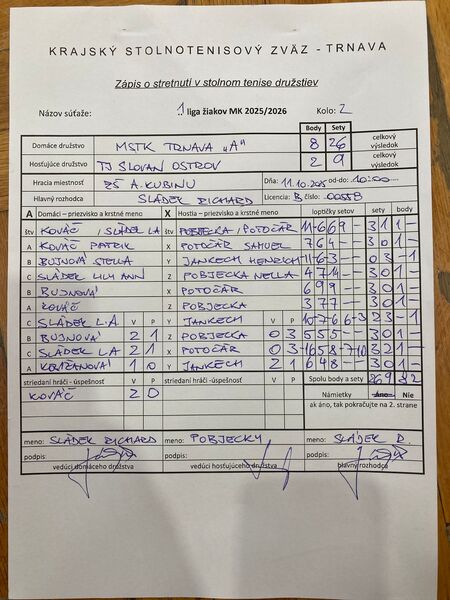 KRAJSKÝ STOLNOTENISOVÝ ZVÄZ - TRNAVA
Zápis o stretnutí v stolnom tenise družstiev
Názov súťaže: 1 liga žiakov MK 2025/2026 Kolo: 2
Body Sety
Domáce družstvo MSTK TRNAVA "A" 8 26 celkový výsledok
Hosťujúce družstvo TJ SLOVAN OSTROV 2 9 celkový výsledok
Hracia miestnosť ZŠ A. KUBINU Dňa: 11.10.2025 od-do: 10:00-
Hlavný rozhodca SLÁDEK RICHARD Licencia: B číslo: 00558
A Domáci - priezvisko a krstné meno X Hostia - priezvisko a krstné meno loptičky setov sety body
štv KOVÁČ / SLÁDEK LA štv POBJECKA / POTOČÁR 3 1 1 -
A KOVÁČ PATRIK X POTOČÁR SAMUEL 7 6 4 - - 3 0 1 -
B BUJNOVÁ STELLA Y JANKECH HENRICH 0 3 - 1
C SLÁDEK LILY ANN Z POBJECKA NELLA 4 7 4 - - 3 0 1 -
B BUJNOVÁ X POTOČÁR 6 9 9 - - 3 0 1 -
A KOVÁČ Z POBJECKA 3 7 7 - - 3 0 1 -
C SLÁDEK L.A V P Y JANKECH V P 2 3 - 1
B BUJNOVÁ 2 1 Z POBJECKA 0 3 5 5 5 - - 3 0 1 -
C SLÁDEK LA 2 1 X POTOČÁR 0 3 3 2 1 -
A 1 0 Y JANKECH 2 1 6 9 8 - - 3 0 1 -
striedaní hráči - úspešnosť V P striedaní hráči - úspešnosť V P Spolu body a sety 26 9 8 2
KOVÁČ 2 0 Námietky Áno Nie
ak áno, tak pokračujte na 2. strane
meno: SLÁDEK RICHARD meno: POBJECKÝ meno: SLÁDEK R.
podpis: podpis: podpis:
vedúci domáceho družstva vedúci hosťujúceho družstva hlavný rozhodca